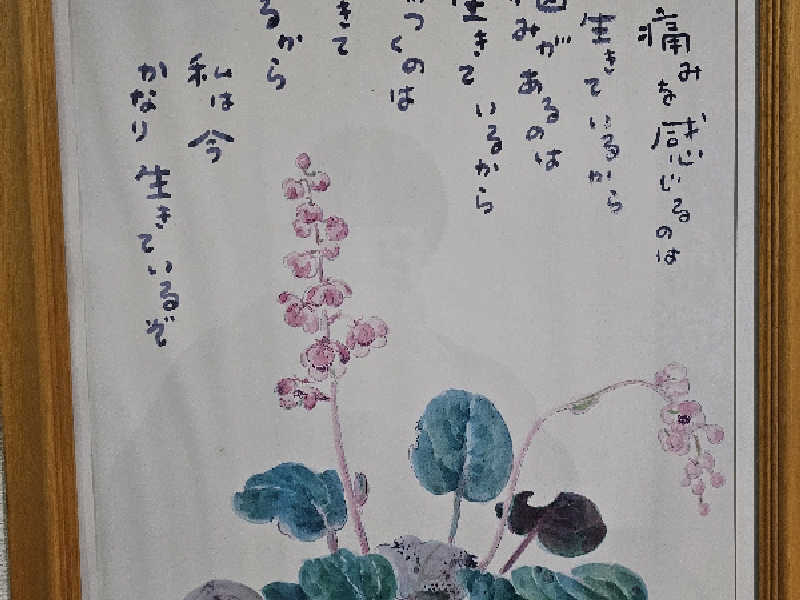 痛みを感じるのは
生きているから
みがあるのは
生きているから
つくのは
きて
るから
私は今
かなり生きているぞ